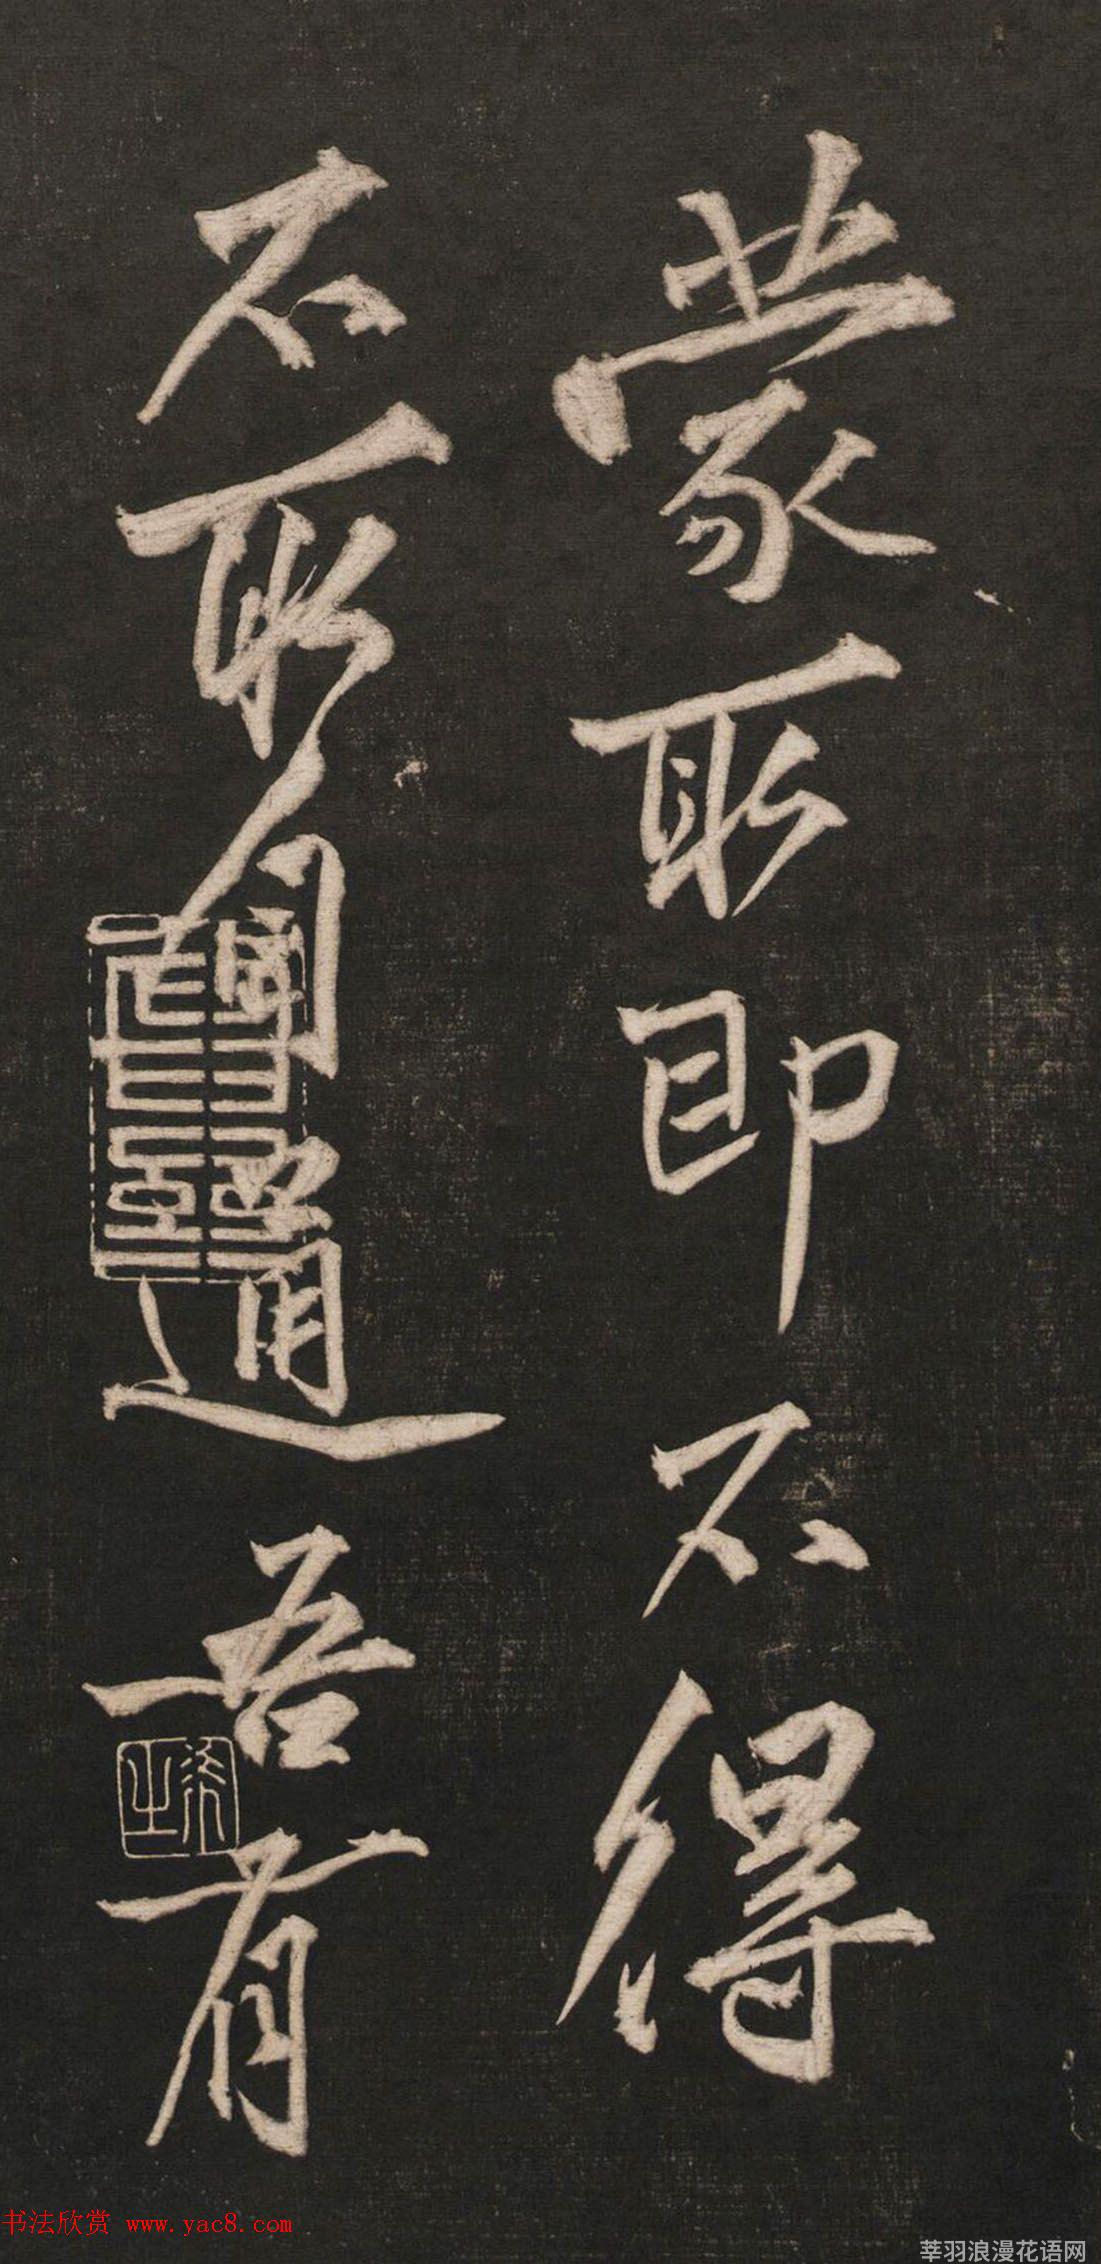 蒙取即不得
不取自通吾有
书法欣赏 www.yac8.com
莘羽浪漫花语网